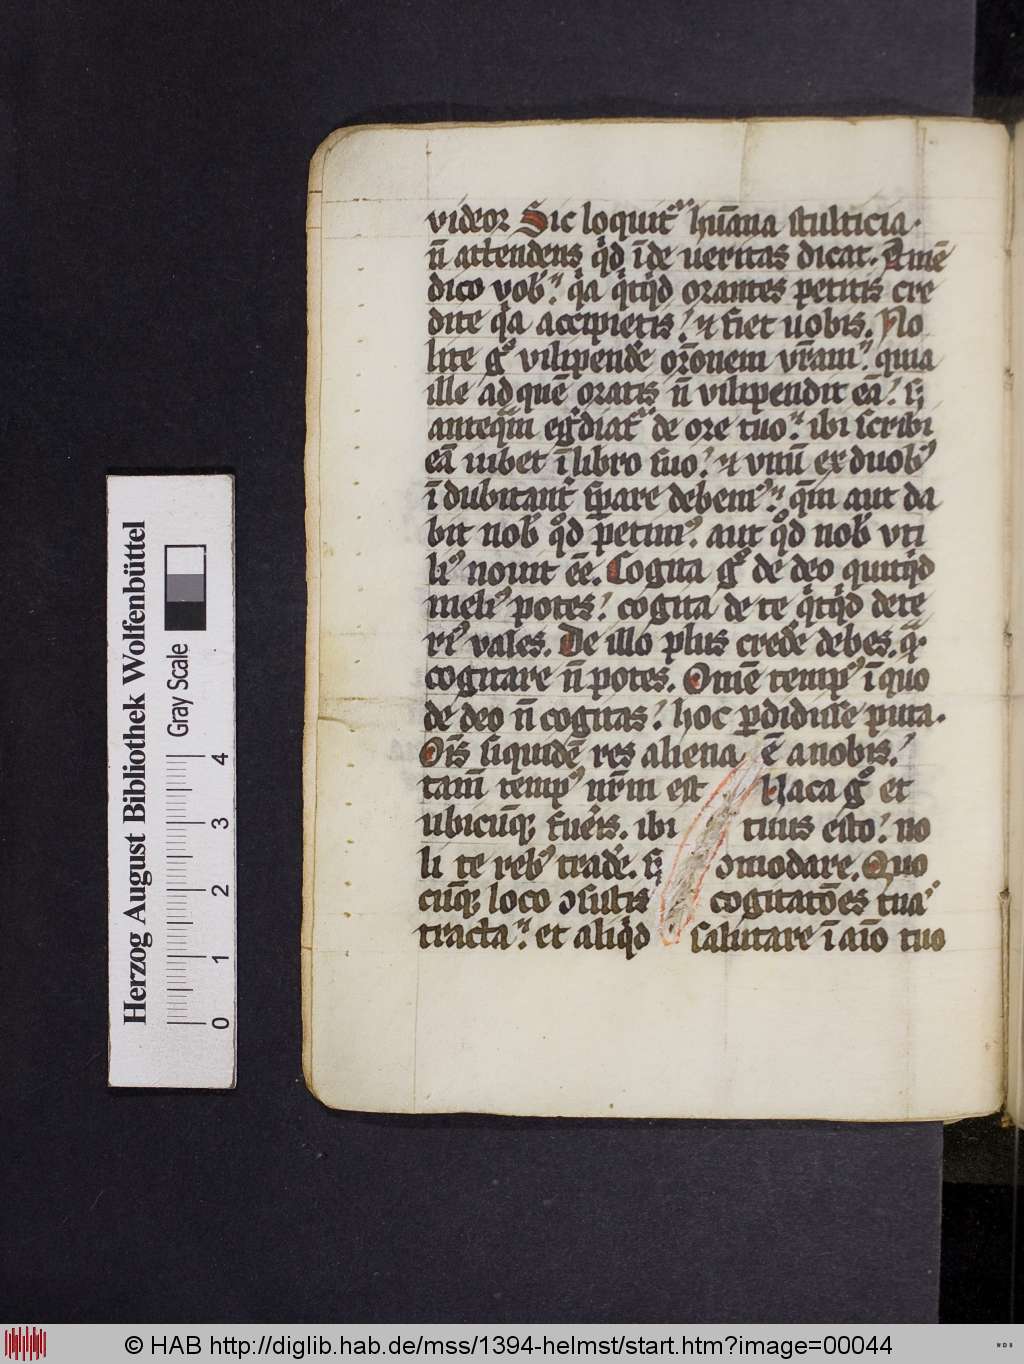 videor Sic loquit᷑ hūana stulticia.
n̄ attendens qͥd īde ueritas dicat. Amē
dico vob̾. qͥa qͥtqͥd orantes petitis cre
dite qͥa accipietis. ⁊ fiet uobis. No
lite gͦ vilipend̾e or̄onem vr̄am. quia
ille ad quē oratis n̄ vilipendit eā. s̄
anteq̄m egͥdiat᷑ de ore tuo. ibi scribi
eā iubet ī libro suo. ⁊ vnū ex duobꝰ
ī dubitant̾ sꝑare debemꝰ. q̄m aut da
bit nob̾ qͦd petimꝰ. aut qͦd nob̾ vti
liꝰ nouit ēe. Cogita gͦ de deo quitqͥd
meliꝰ potes. cogita de te qͥtqͥd dete
riꝰ vales. De illo plus cred̾e debes. q̄.
cogitare n̄ potes. Omē tempꝰ ī quo
de deo n̄ cogitas. hoc ꝑdidisse puta.
Oīs siquidē res aliena ē a nobis.
tam̄ tempꝰ nr̄m est Uaca gͦ et
ubicūqꝫ fueris. ibi tuus esto. no
li te rebꝰ trad̾e. s̄ ꝯmodare. Quo
cūqꝫ loco ꝯsistis cogitatōes tua
tracta. et aliqͥd salutare ī aīo tuo
Herzog August Bibliothek Wolfenbüttel
Gray Scale
0 1 2 3 4
© HAB http://diglib.hab.de/mss/1394-helmst/start.htm?image=00044